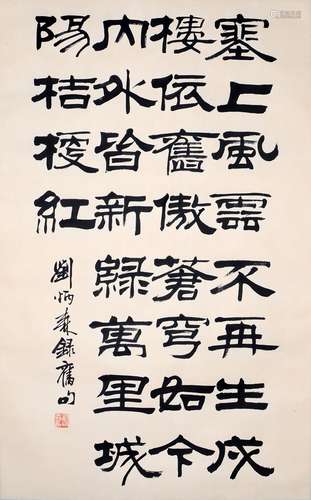 塞上風雲不再生戍
樓依舊傲蒼穹如今
內外皆新綠萬里城
陽桔梗紅
劉炳森錄舊句